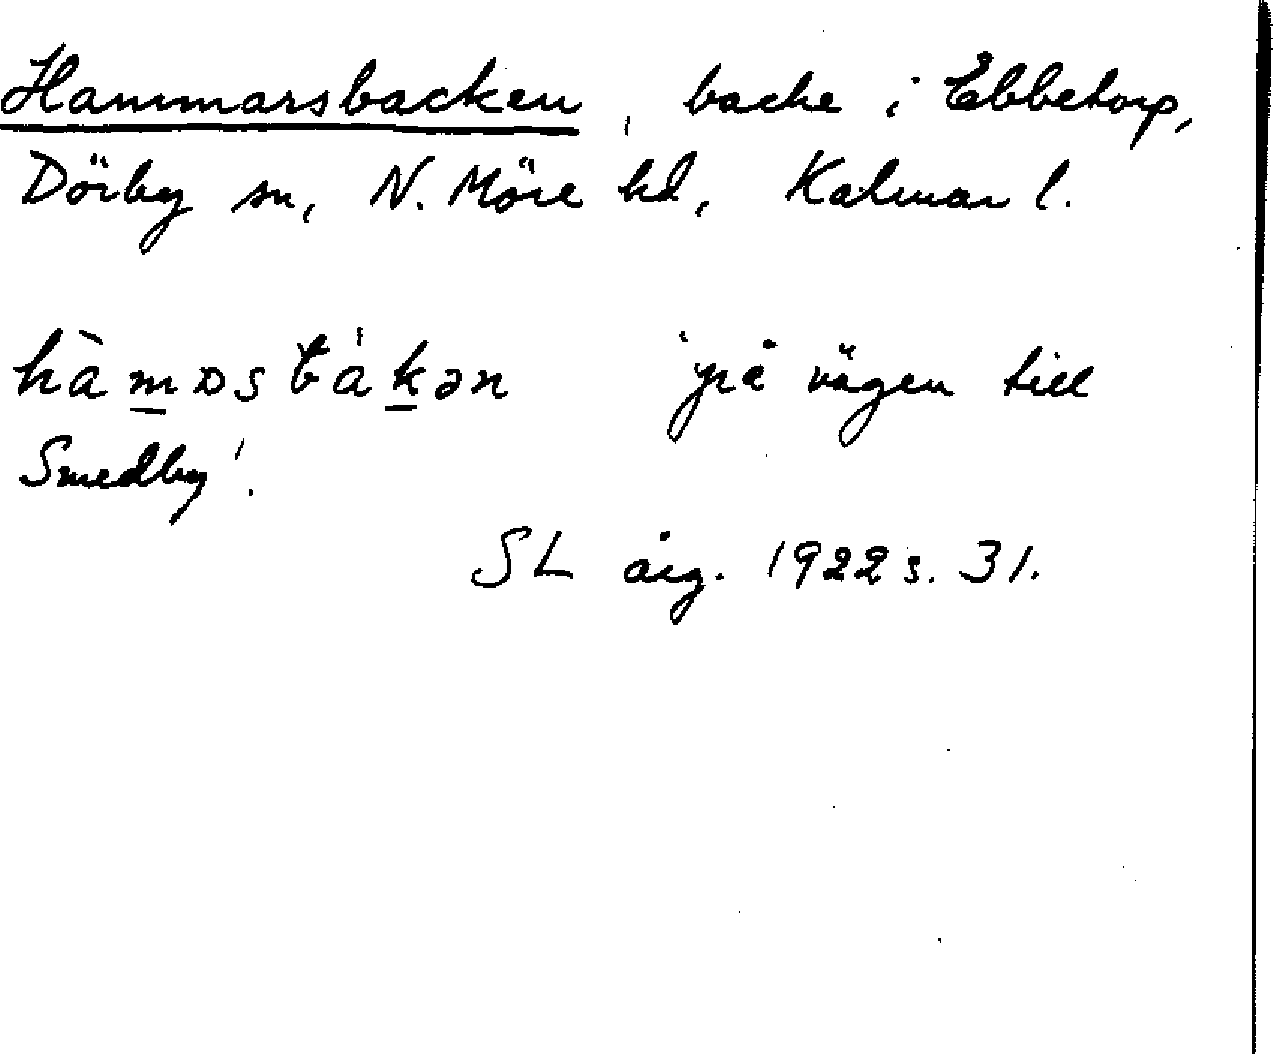 Hammarsbacken, backe i Ebbetorp,
Dörby sn, N. Möre hd, Kalmar l.
hàmɒsbákən 'på vägen till
Smedby'.
SL årg. 1922 s. 31.